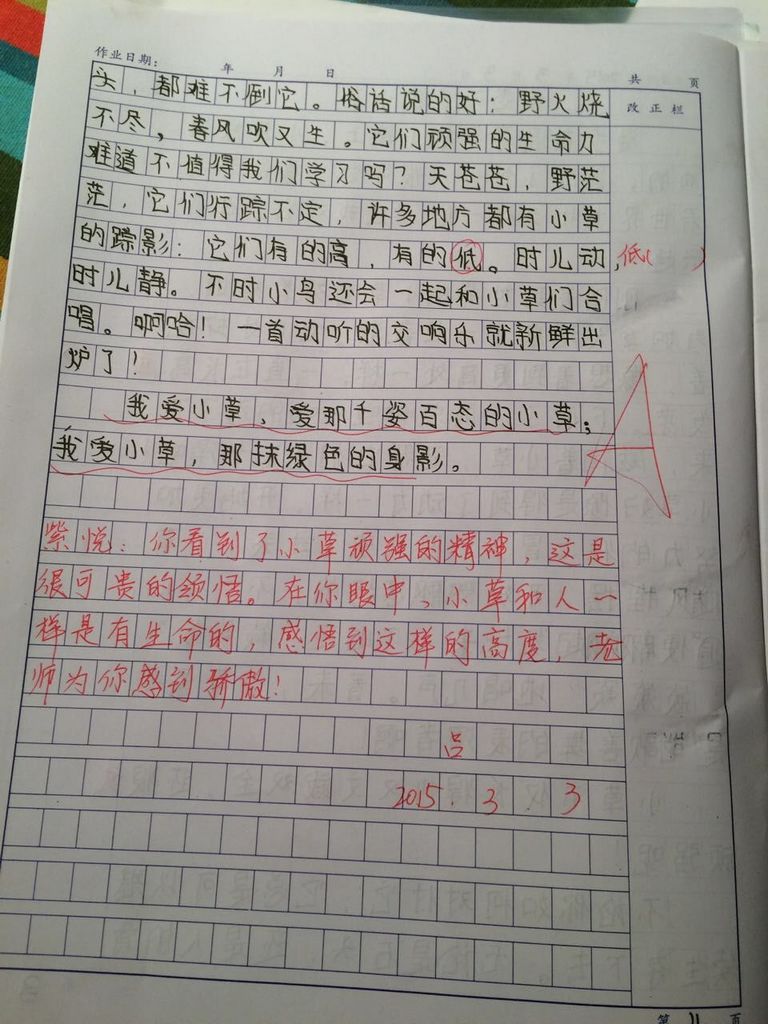 作业日期: 年 月 日 共 页
改正栏
头，都难不倒它。俗话说的好：野火烧
不尽，春风吹又生。它们顽强的生命力
难道不值得我们学习吗？天苍苍，野茫
茫，它们行踪不定，许多地方都有小草
的踪影：它们有的高 有的低。时儿动，
低( )
时儿静。不时小鸟还会一起和小草们合
唱。啊哈！一首动听的交响乐就新鲜出
炉了！
我爱小草，爱那千姿百态的小草；
我爱小草，那抹绿色的身影。
A
紫悦：你看到了小草顽强的精神，这是
很可贵的领悟。在你眼中，小草和人一
样是有生命的，感悟到这样的高度，老
师为你感到骄傲！
吕
2015.3.3
第 11 页